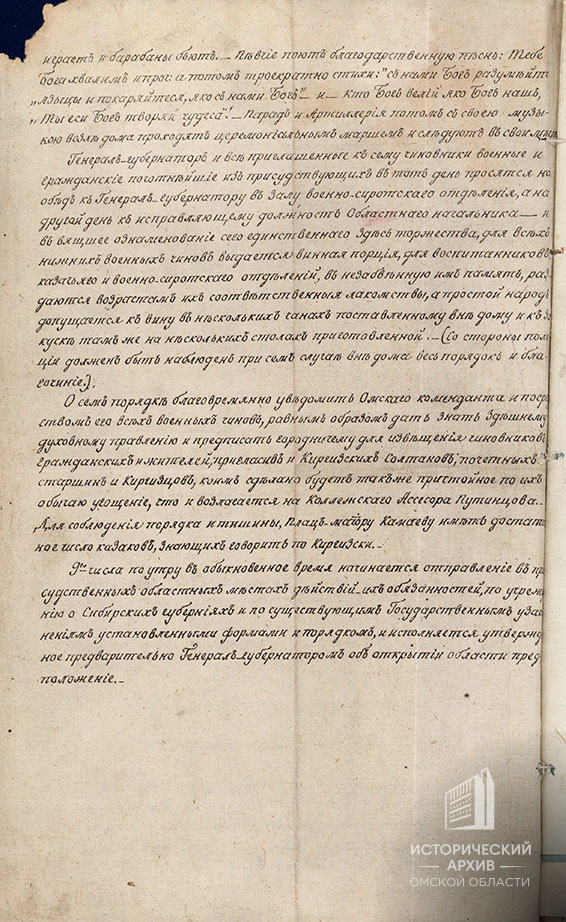 играетъ и барабаны бьютъ. — Пѣвчіе поютъ благодарственную пѣснь: Тебе
Бога хвалимъ и проч: а потомъ троекратно стихи: "съ нами Богъ разумѣйте
"языцы и покаряйтеся, яко съ нами Богъ" — и — кто Богъ велій яко Богъ нашъ,
"Ты еси Богъ творяй чудеса". — Парадъ и Артиллерія потомъ съ своею музы-
кою возлѣ дома проходятъ церемоніальнымъ маршемъ и слѣдуютъ въ свои
Генералъ-губернаторъ и всѣ приглашенные къ сему чиновники военные и
гражданскіе почотнѣйшіе изъ присудствующихъ въ тотъ день просятся на
обѣдъ къ Генералъ-губернатору въ залу военно-сиротскаго отдѣленія, а на
другой день къ исправляющему должность Областнаго начальника — и
въ вящшее ознаменованіе сего единственнаго здѣсь торжества, для всѣхъ
нижнихъ военныхъ чиновъ выдается винная порція, для воспитанниковъ
казачьяго и военно-сиротскаго отдѣленій, въ незабвѣнную имъ память, раз-
даются возрастамъ ихъ соотвѣтственныя лакомствы, а простой народъ
допущается къ вину въ нѣсколькихъ чанахъ поставленному внѣ дому и къ за-
кускѣ тамъ же на нѣсколькихъ столахъ приготовленной. — (Со стороны поли-
ціи должен быть наблюденъ при семъ случаѣ внѣ дома весь порядокъ и бла-
гочиніе).
О семъ порядкѣ благовременно увѣдомить Омскаго коменданта и посред
ствомъ его всѣхъ военныхъ чиновъ, равнымъ образомъ дать знать здѣшнему
духовному правленію и предписать городничему для извѣщенія чиновниковъ
гражданскихъ и жителей, пригласивъ и Киргизскихъ Солтановъ, почетныхъ
старшинъ и Киргизцовъ, коимъ сдѣлано будетъ также пристойное по ихъ
обычаю угощеніе, что и возлагается на Коллежскаго Ассесора Путинцова. —
Для соблюденія порядка и тишины, Плацъ-маіору Камаеву имѣть достаточ
ное число казаковъ, знающихъ говорить по Киргизски. —
9го числа по утру въ обыкновенное время начинается отправленіе въ при
судственныхъ областныхъ мѣстахъ дѣйствій ихъ обязанностей, по учрежде
нію о Сибирскихъ губерніяхъ и по существующимъ Государственнымъ узако
неніямъ установленными формами и порядкомъ, и исполняется утвержден
ное предварительно Генералъ-губернаторомъ объ открытіи области пред
положеніе. —
ИСТОРИЧЕСКИЙ
АРХИВ
ОМСКОЙ ОБЛАСТИ